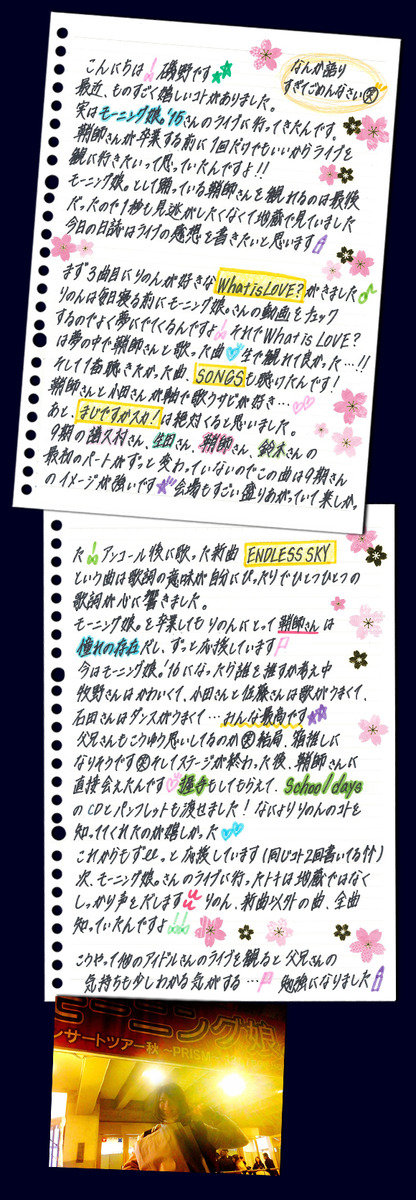 こんにちは!磯野です
なんか語り
すぎてごめんなさい笑
最近、ものすごく嬉しいコトがありました。
実はモーニング娘。'15さんのライブに行ってきたんです。
鞘師さんが卒業する前に1回だけでもいいからライブを
観に行きたいって思っていたんですよ!!
モーニング娘。として踊っている鞘師さんを観れるのは最後
だったので1秒も見逃がしたくなくて地蔵で見ていました
今日の日誌はライブの感想を書きたいと思います
まず3曲目にりのんが好きなWhat is LOVE?がきました
りのんは毎日寝る前にモーニング娘。さんの動画をチェック
するのでよく夢にでてくるんですよ!それでWhat is LOVE?
は夢の中で鞘師さんと歌った曲 生で観れて良かった…!!
そして1番聴きたかった曲、SONGSも聴けたんです!
鞘師さんと小田さんが軸で歌うサビが好き…
あと、まじですかスカ!は絶対くると思いました。
9期の譜久村さん、生田さん、鞘師さん、鈴木さんの
最初のパートがずっと変わっていないのでこの曲は9期さん
のイメージが強いです 会場もすごい盛りあがっていて楽しかっ
た!アンコール後に歌った新曲 ENDLESS SKY
という曲は歌詞の意味が自分にぴったりでひとつひとつの
歌詞が心に響きました。
モーニング娘。を卒業してもりのんにとって鞘師さんは
憧れの存在だし、ずっと応援しています
今はモーニング娘。'16になったら誰を推すか考え中
牧野さんはかわいくて、小田さんと佐藤さんは歌がうまくて、
石田さんはダンスがうまくて…みんな最高です
父兄さんもこうゆう思いしてるのか笑 結局、箱推しに
なりそうです笑 そしてステージが終わった後、鞘師さんに
直接会えたんです 握手もしてもらえて、School days
のCDとパンフレットも渡せました!なによりりのんのコトを
知っててくれたのが嬉しかった
これからもずーっと応援しています(同じコト2回書いてる件)
次、モーニング娘。さんのライブに行ったトキは地蔵ではなく
しっかり声をだします!!りのん、新曲以外の曲、全曲
知っていたんですよ!!
こうやって他のアイドルさんのライブを観ると父兄さんの
気持ちも少しわかる気がする… 勉強になりました
モーニング娘
ンサートツアー秋~PRISM